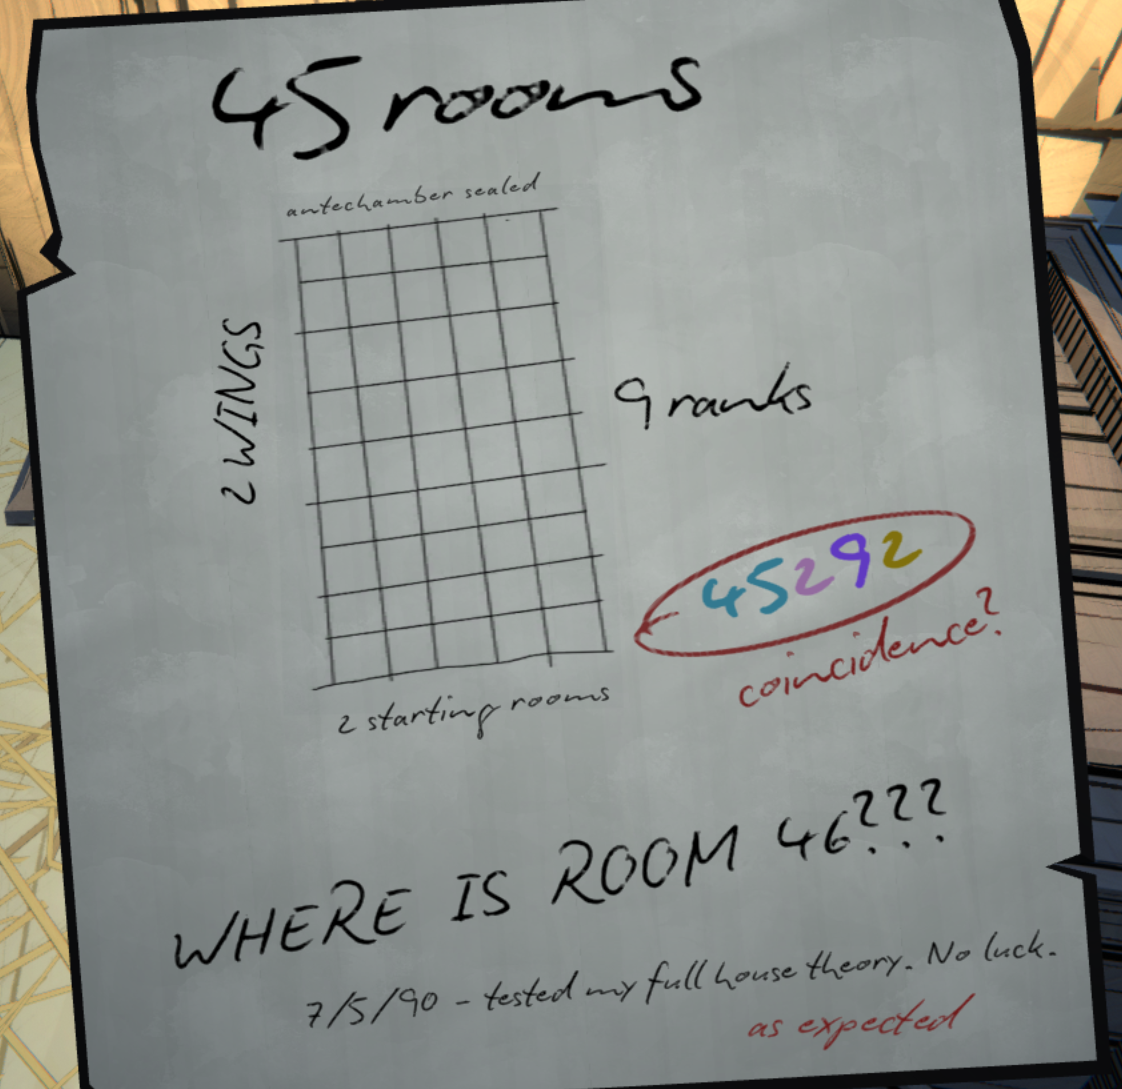 45 rooms
antechamber sealed
2 WINGS
9 ranks
45292
coincidence?
2 starting rooms
WHERE IS ROOM 46???
7/5/90 - tested my full house theory. No luck.
as expected